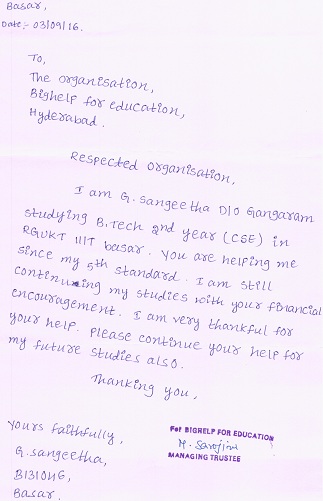 Basar,
Date:- 03/09/16.
To,
The organisation,
Bighelp for education,
Hyderabad.
Respected organisation,
I am G. Sangeetha D/o Gangaram
studying B.Tech 2nd year (CSE) in
RGUKT IIIT basar. You are helping me
since my 5th standard. I am still
continuing my studies with your financial
encouragement. I am very thankful for
your help. Please continue your help for
my future studies also.
Thanking you,
Yours faithfully,
G. Sangeetha,
B131046,
Basar.
For BIGHELP FOR EDUCATION
M. Sarojini
MANAGING TRUSTEE